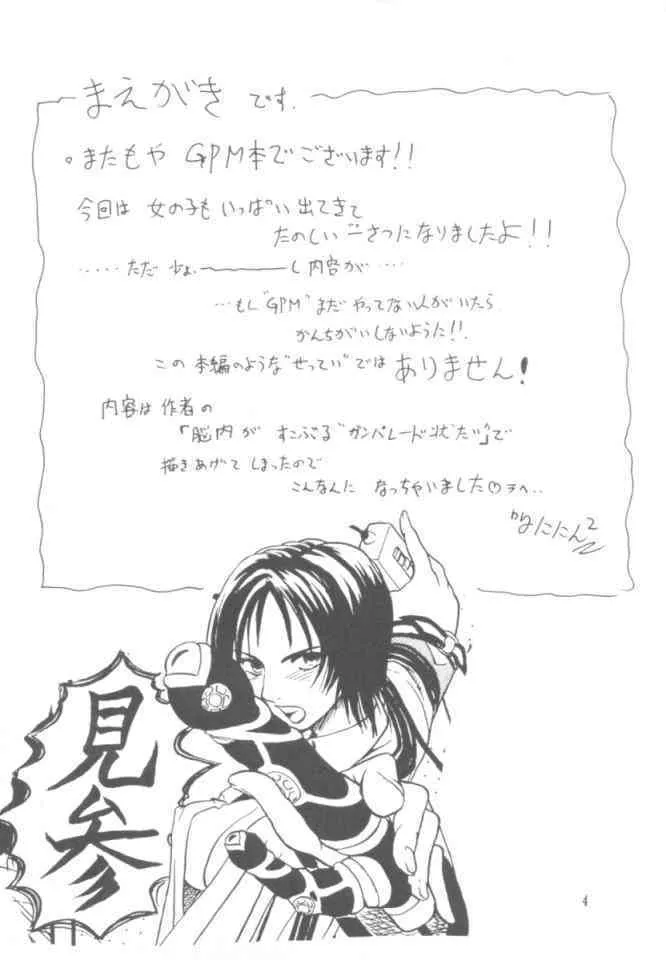 まえがき です.
。またもや GPM本でございます!!
今回は 女の子も いっぱい 出てきて
たのしい 一さつに なりましたよ!!
‥‥‥ ただ 少ぉ――――し 内容が‥‥
…もし "GPM" まだ やってない人がいたら
かんちがいしないように!!
この 本編のような "せってい" では ありません!
内容は 作者の
「脳内が すこぶる "ガンパレード状たい"」で
描きあげて しまったので
こんなんに なっちゃいました♡テヘ..
見参
4